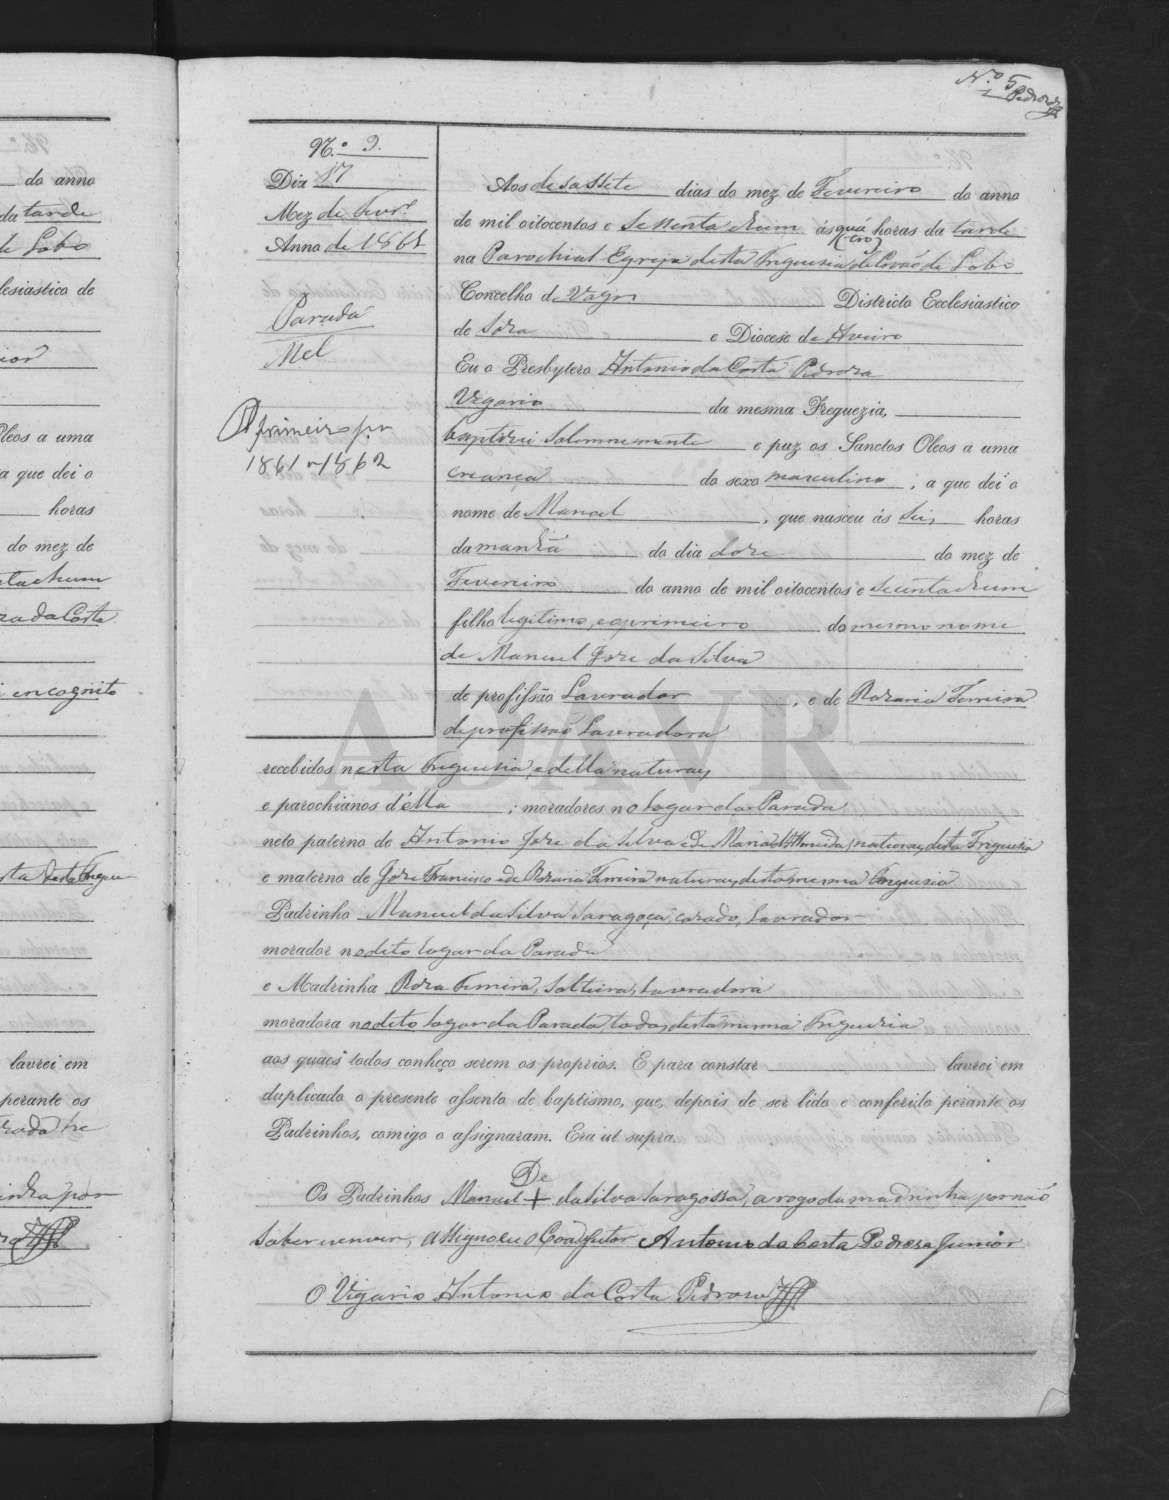 N.º 5
Pedroza
N.º 9.
Dia 17
Mez de Fevr.º
Anno de 1861
Parada
Mel
Aos desassete dias do mez de Fevereiro do anno
de mil oitocentos e sessenta e hum ás quatro horas da tarde
na Parochial Egreja desta Freguesia de Covão de Lobo
Concelho de Vagos Districto Ecclesiastico
de Soza e Diocese de Aveiro
Eu o Presbytero Antonio da Costa Pedroza
Vigario da mesma Freguezia,
baptizei Solemnemente e puz os Sanctos Oleos a uma
creança do sexo masculino; a que dei o
nome de Manoel, que nasceu ás Seis horas
da manhã do dia doze do mez de
Fevereiro do anno de mil oitocentos e secenta e hum
filho legitimo, e o primeiro do mesmo nome
de Manuel Joze da Silva
de profissão Lavrador, e de Rozaria Ferreira
de profissão Lavradora
recebidos nesta Freguesia, e della naturaes
e parochianos d'ella; moradores no Logar da Parada
neto paterno de Antonio Joze da Silva e de Maria d'Almeida, naturaes desta Freguesia
e materno de Joze Francisco e de Rozaria Ferreira naturaes desta mesma Freguesia
Padrinho Manuel da Silva Saragoça, cazado, Lavrador
morador no dito Logar da Parada
e Madrinha Roza Ferreira, Solteira, Lavradora
moradora no dito Logar da Parada, todos desta mesma Freguezia
aos quaes todos conheço serem os proprios. E para constar lavrei em
duplicado o presente assento de baptismo, que, depois de ser lido e conferido perante os
Padrinhos, comigo o assignaram. Era ut supra.
De
Os Padrinhos Manuel + da Silva Saragossa, a rogo da madrinha, por não
Saber escrever, assignou o Coadjutor Antonio da Costa Pedroza Junior
O Vigario Antonio da Costa Pedroza
primeiro
1861 1862
do anno
da tarde
de Lobo
lesiastico de
Oleos a uma
a que dei o
horas
do mez de
da Costa
encognito
lavrei em
perante os
por
ADAVR